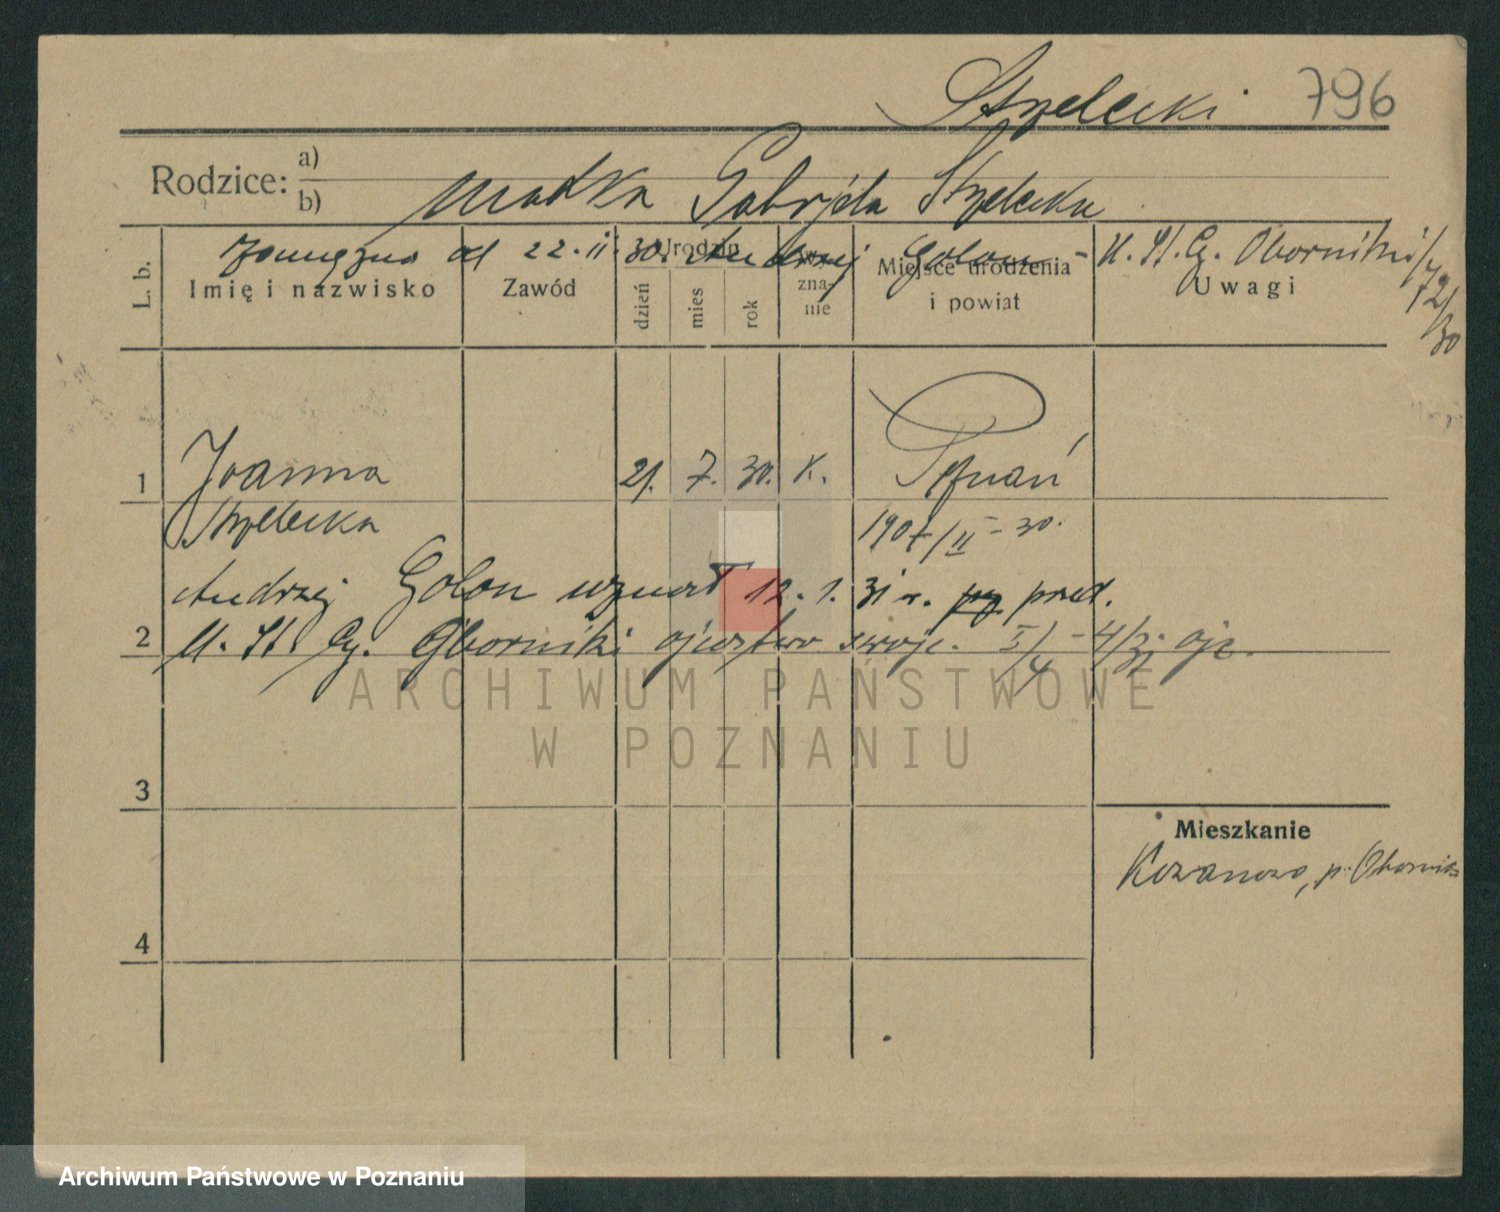 Strzelecki 796
Rodzice: a)
b) matka Gabrjela Strzelecka
zamężna od 22.11.30. Andrzej Golon - U. St. Cy. Oborniki/72/30
L. b.
Imię i nazwisko
Zawód
Urodzin
dzień
mies
rok
Wy-
zna-
nie
Miejsce urodzenia
i powiat
Uwagi
1 Joanna 21. 7. 30. K. Poznań
Strzelecka 1907/II - 30.
Andrzej Golon uznał 12. 1. 31 r. przed.
2 U. St. Cy. Oborniki ojcostwo swoje. I/4 - 4/31 ojc.
3
Mieszkanie
p. Oborniki
4
ARCHIWUM PAŃSTWOWE
W POZNANIU
Archiwum Państwowe w Poznaniu